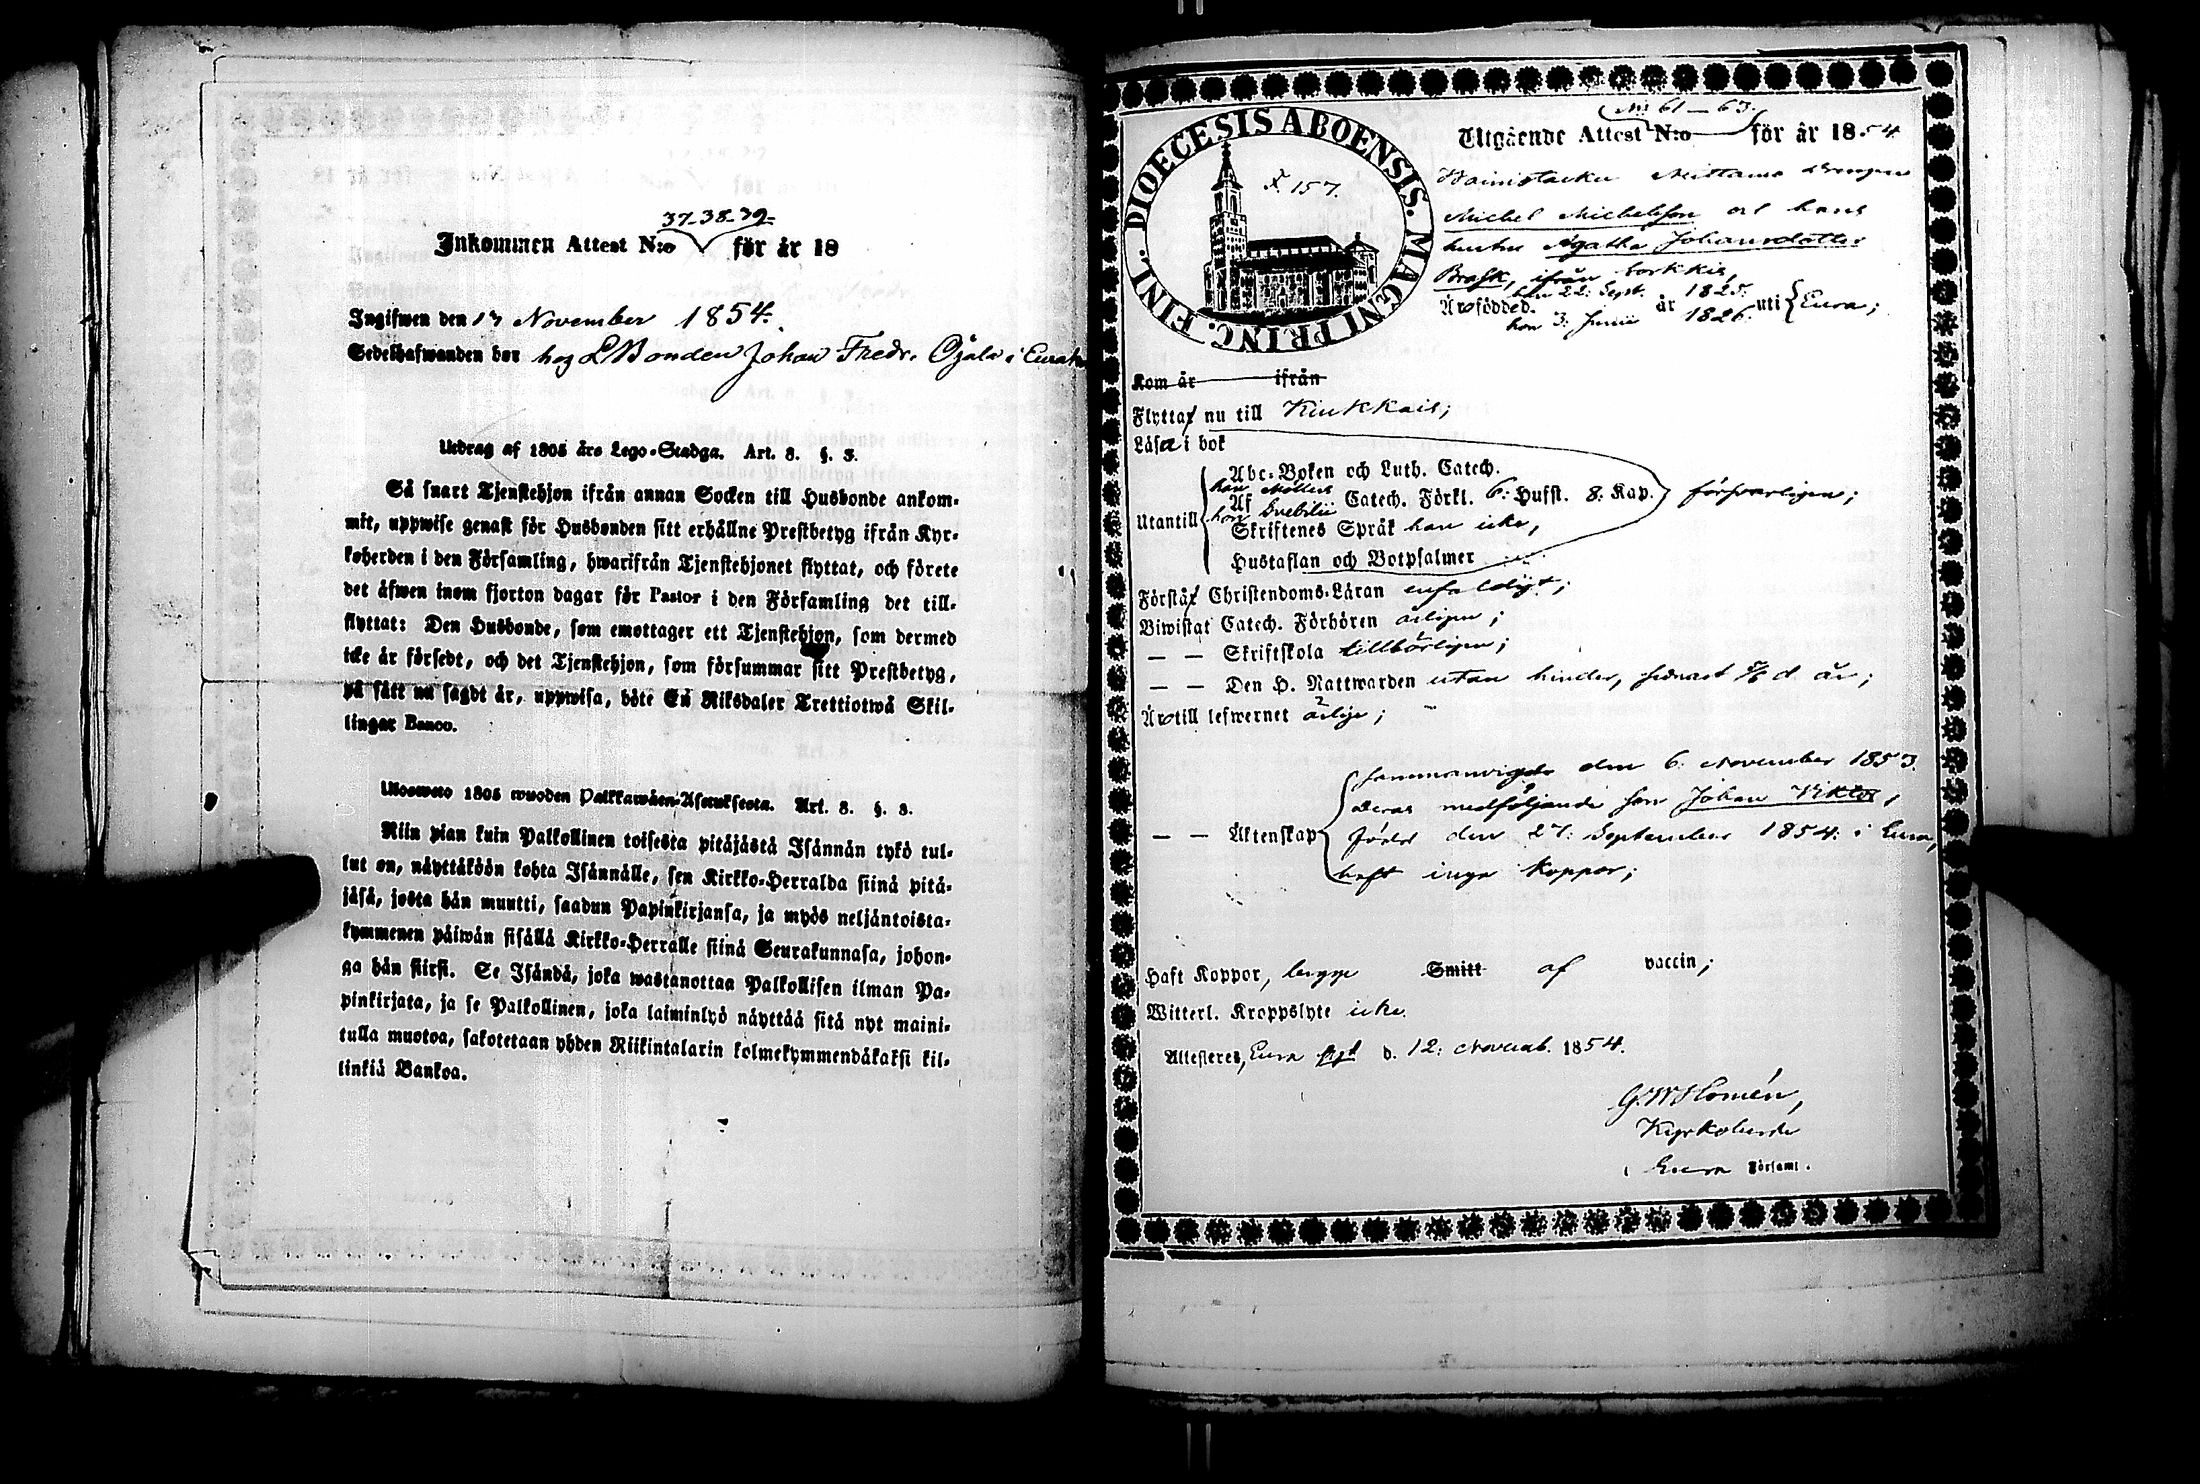 37-38-39-
Inkommen Attest N:o för år 18
Ingifwen den 13 November 1854.
Sedelhafwanden bor hos LBonden Johan Fredr. Ojala i Eura
Utdrag af 1805 års Lego-Stadga. Art. 8. §. 3.
Så snart Tjenstehjon ifrån annan Socken till Husbonde ankom-
mit, uppwise genast för Husbonden sitt erhållne Prestbetyg ifrån Kyr-
koherden i den Församling, hwarifrån Tjenstehjonet flyttat, och förete
det äfwen inom fjorton dagar för Pastor i den Församling det till-
flyttat: Den Husbonde, som emottager ett Tjenstehjon, som dermed
icke är försedt, och det Tjenstehjon, som försummar sitt Prestbetyg,
på sätt nu sagdt är, uppwisa, böte En Riksdaler Trettiotwå Skil-
lingar Banco.
Ulosweto 1805 wuoden Palkkawäen-Asetuksesta. Art. 8. §. 3.
Niin pian kuin Palkollinen toisesta pitäjästä Isännän tykö tul-
lut on, näyttäköön kohta Isännälle, sen Kirkko-Herralda siinä pitä-
jäsä, josta hän muutti, saadun Papinkirjansa, ja myös neljäntoista-
kymmenen päiwän sisällä Kirkko-Herralle siinä Seurakunnasa, johon-
ga hän siirsi. Se Isändä, joka wastanottaa Palkollisen ilman Pa-
pinkirjata, ja se Palkollinen, joka laiminlyö näyttää sitä nyt maini-
tulla muotoa, sakotetaan yhden Riikintalarin kolmekymmendäkaksi kil-
linkiä Bankoa.
DIOECESIS ABOENSIS. MAGNI PRINC. FINL.
F. 157.
No 61-63.
Utgående Attest N:o för år 1854
Michel Michelsson och hans
hustru Agatha Johansdotter
Brask, ifrån
han 22: Sept. 1825.
Äro födde d. år uti Eura;
hon 3. Junii 1826.
Kom år ifrån
Flytta nu till Kiukkais;
Läsa i bok
Abc-Boken och Luth. Catech.
han Möllers
Utantill Af Catech. Förkl. 6: Hufst. 8: Kap. försvarligen;
hon Svebilii
Skriftenes Språk han icke,
Hustaflan och Botpsalmer
Förstå Christendoms-Läran enfaldigt;
Biwistat Catech. Förhören årligen;
— — Skriftskola tillbörligen;
— — Den H. Nattwarden utan hinder, senast d. år;
Äro till lefwernet ärlige;
Sammanvigde den 6. November 1853.
Deras medföljande son Johan Viktor,
— — Äktenskap född den 27: September 1854. i Eura,
haft inga koppor;
Haft Koppor, begge Smitt af vaccin;
Witterl. Kroppslyte icke.
Attesteres, Eura pgd d. 12: Novemb. 1854.
G.W Homén,
Kyrkoherde
i Eura Församl.